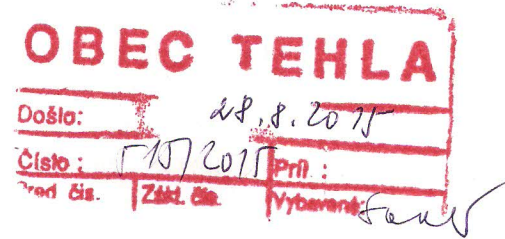 OBEC TEHLA
Došlo: 28.8.2015
Číslo: 515/2015 Príl.:
Pred. čís. Zákl. čís. Vybavené: